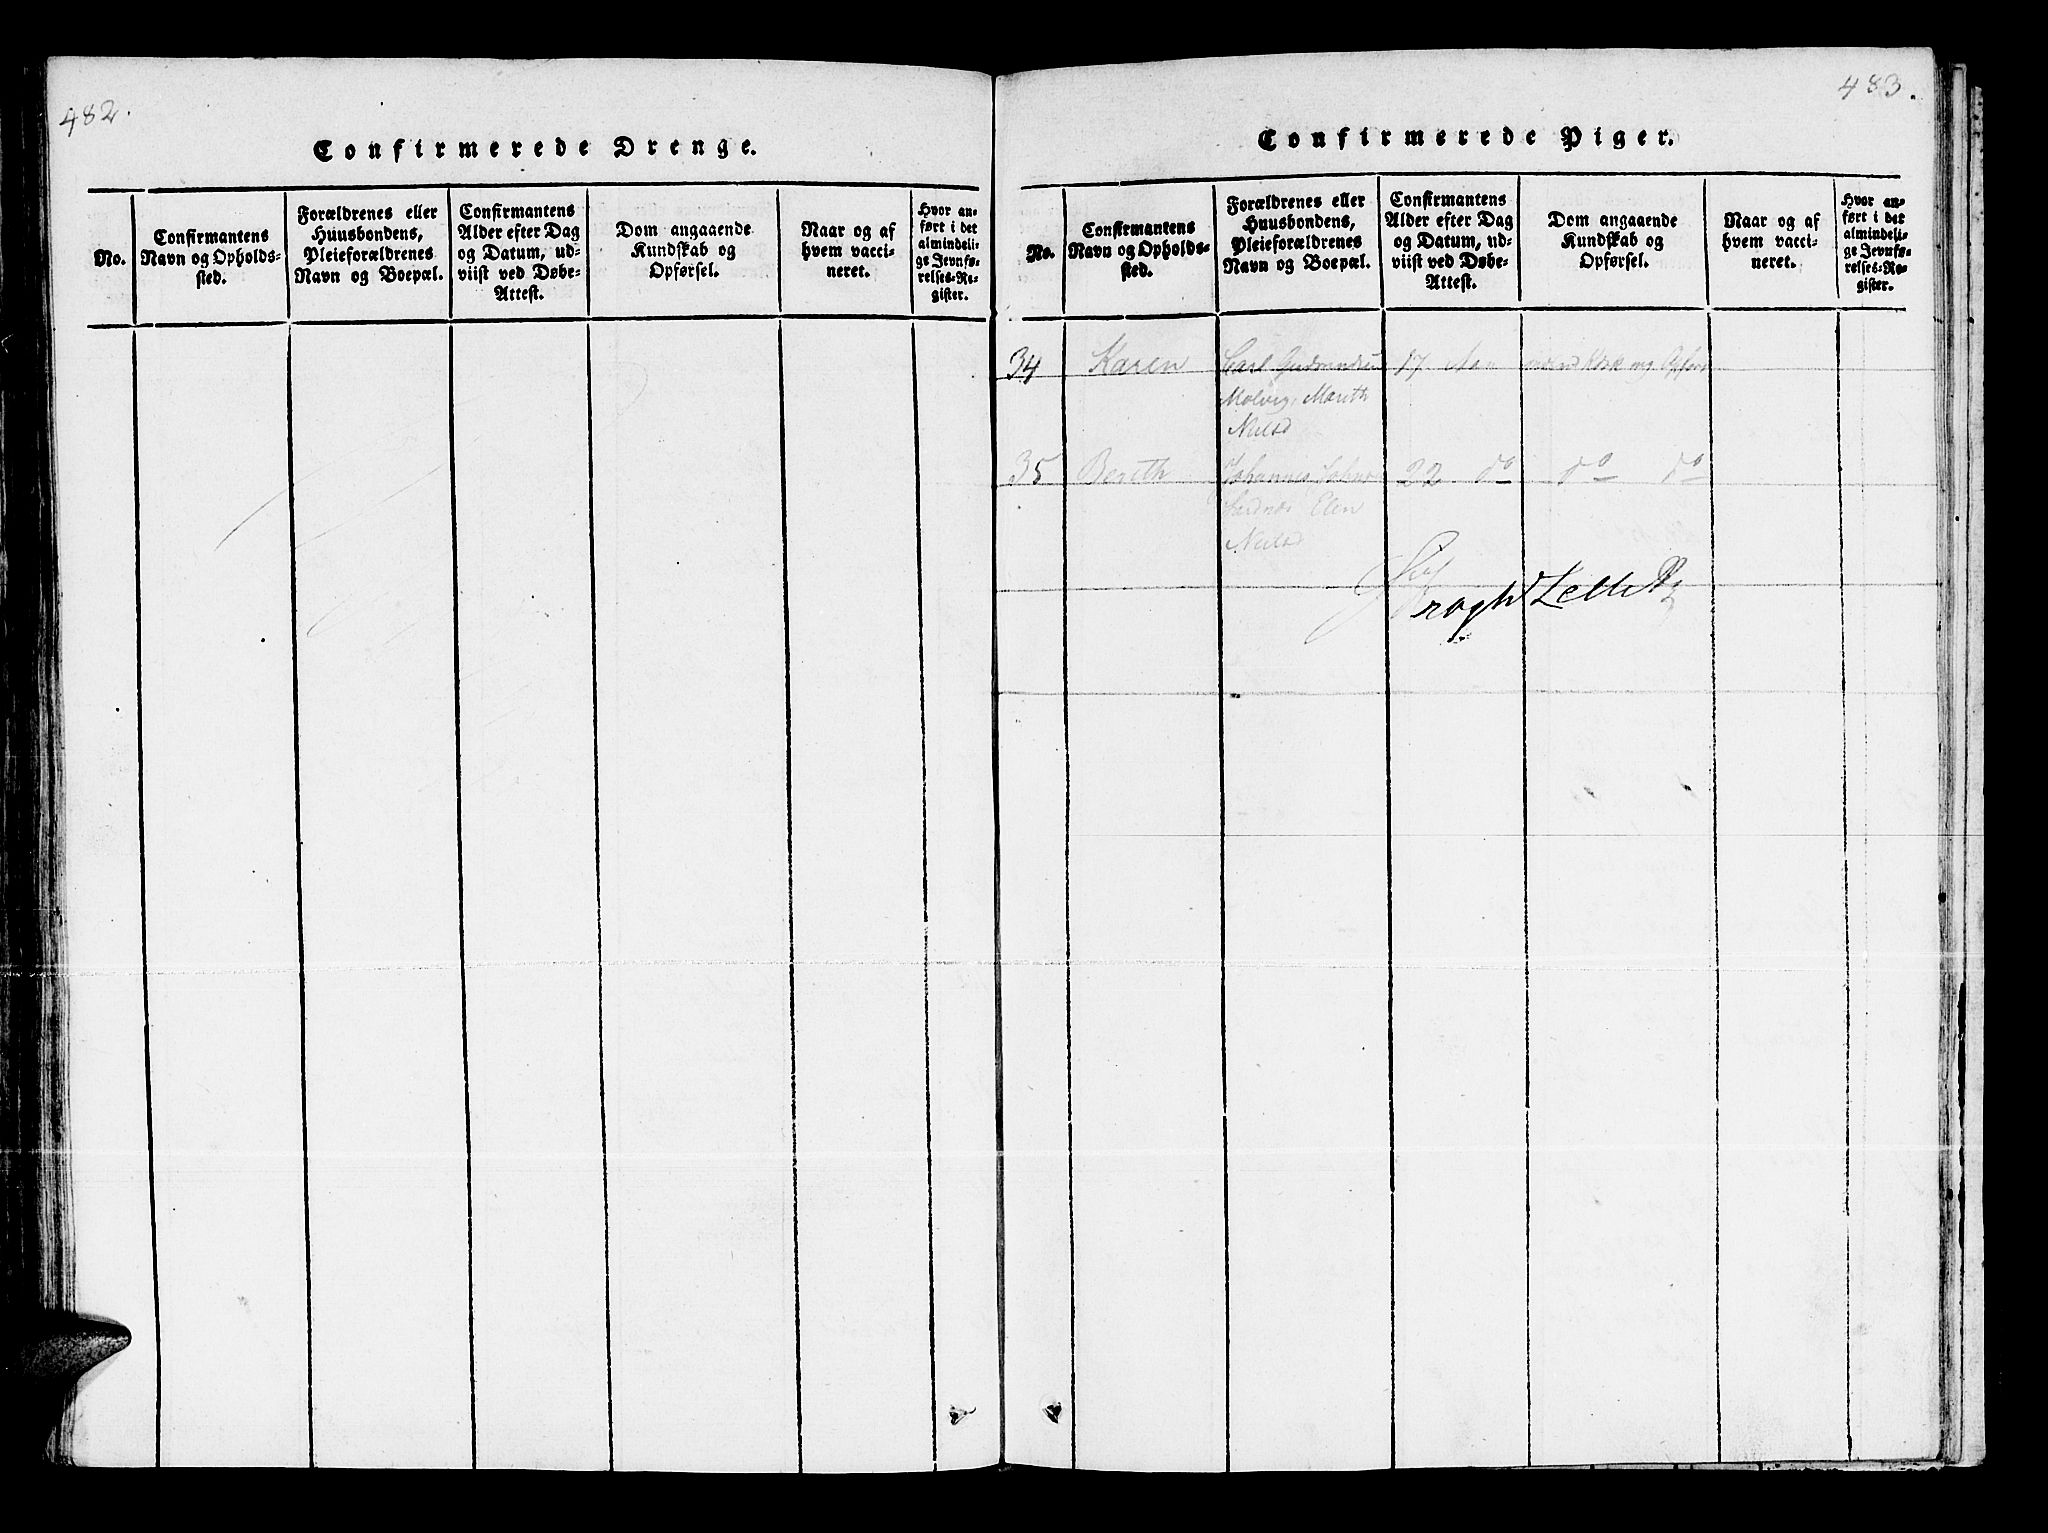 482.
Confirmerede Drenge.
No.
Confirmantens
Navn og Opholds-
sted.
Forældrenes eller
Huusbondens,
Pleieforældrenes
Navn og Boepæl.
Confirmantens
Alder efter Dag
og Datum, ud-
viist ved Døbe-
Attest.
Dom angaaende
Kundskab og
Opførsel.
Naar og af
hvem vacci-
neret.
Hvor an-
ført i det
almindeli-
ge Jevnfø-
relses-Re-
gister.
483.
Confirmerede Piger.
No.
Confirmantens
Navn og Opholds-
sted.
Forældrenes eller
Huusbondens,
Pleieforældrenes
Navn og Boepæl.
Confirmantens
Alder efter Dag
og Datum, ud-
viist ved Døbe-
Attest.
Dom angaaende
Kundskab og
Opførsel.
Naar og af
hvem vacci-
neret.
Hvor an-
ført i det
almindeli-
ge Jevnfø-
relses-Re-
gister.
34 Karen Carl 17 Aar
Marith
Nilsd
35 Berith Johannes 22 do do do
Elen
Nilsd